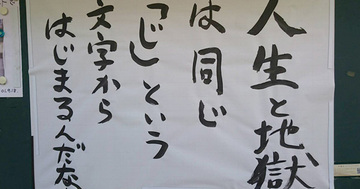 人生と地獄
は同じ
「じ」という
文字から
はじまるんだな